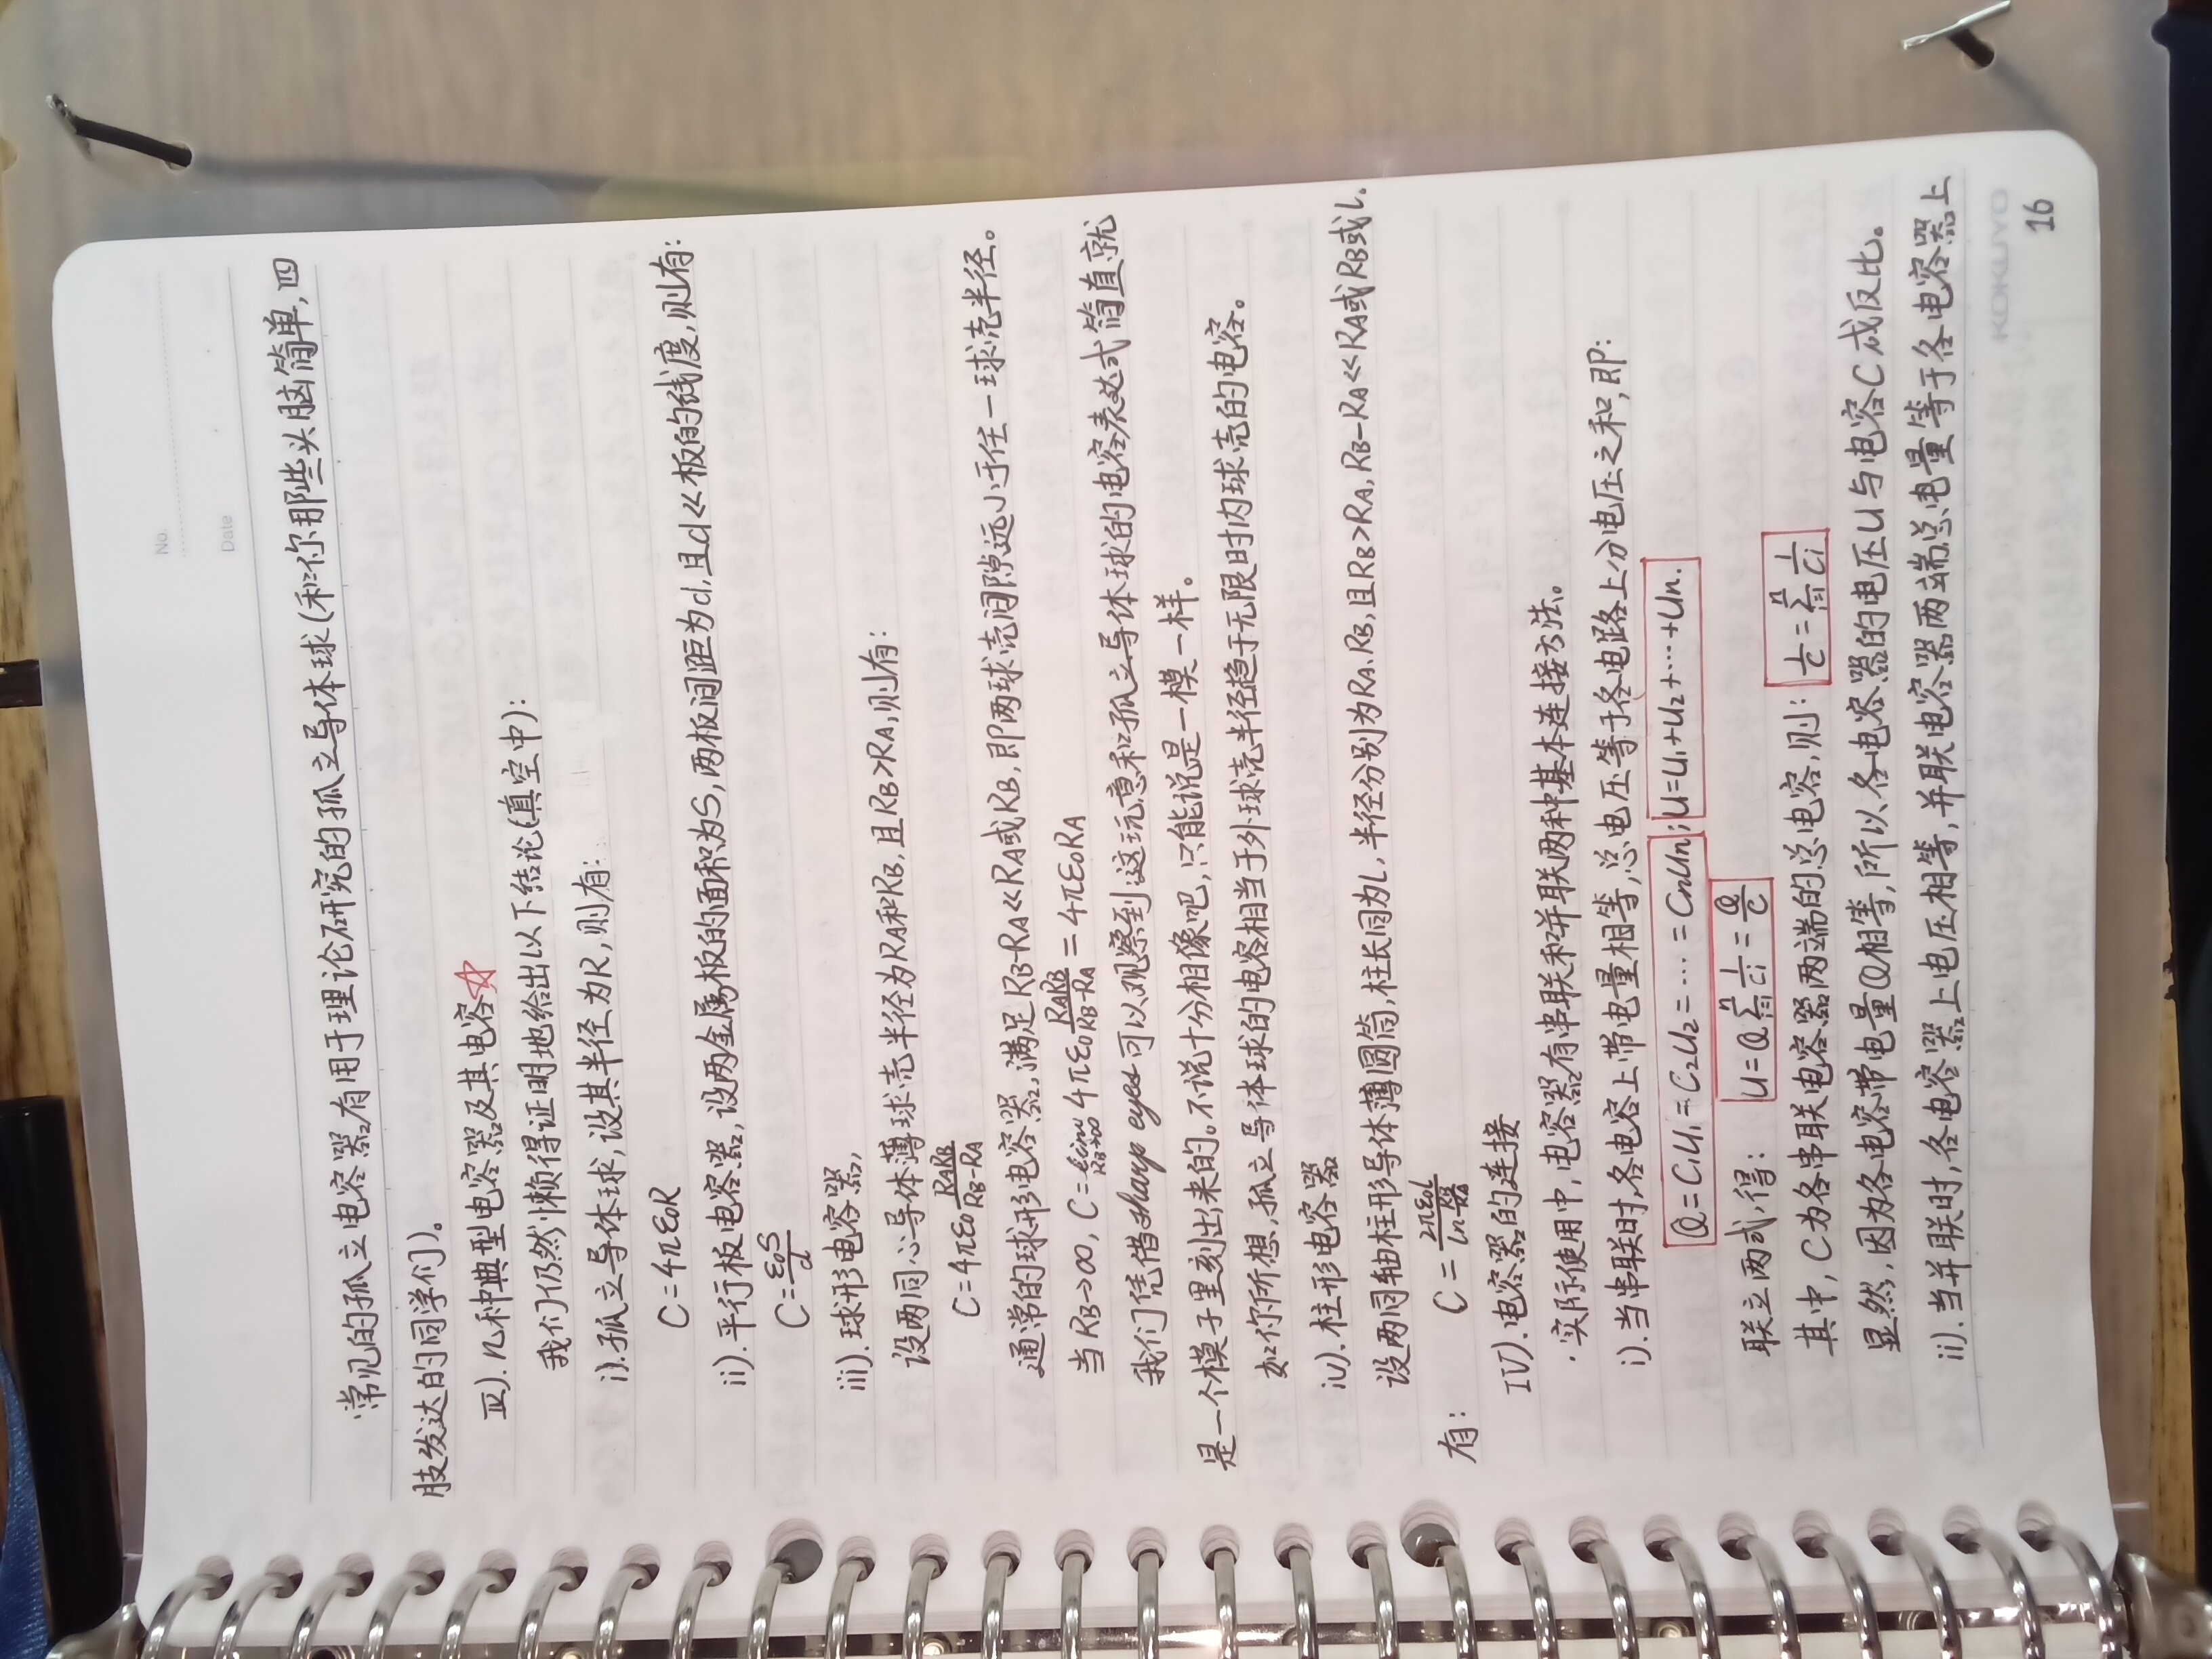 No.
Date
常见的孤立电容器有用于理论研究的孤立导体球(和你那些头脑简单,四
肢发达的同学们)。
Ⅲ).几种典型电容器及其电容☆
我们仍然懒得证明地给出以下结论(真空中):
i).孤立导体球,设其半径为R,则有:
C=4πε₀R
ii).平行板电容器,设两金属板的面积为S,两板间距为d,且d≪板的线度,则有:
C=ε₀S/d
iii).球形电容器,
设两同心导体薄球壳半径为RA和RB,且RB>RA,则有:
C=4πε₀ RARB/(RB-RA)
通常的球形电容器,满足RB-RA≪RA或RB,即两球壳间隙远小于任一球壳半径。
当RB→∞, C=lim RB→∞ 4πε₀ RARB/(RB-RA) = 4πε₀RA
我们凭借sharp eyes可以观察到这玩意和孤立导体球的电容表达式简直就
是一个模子里刻出来的。不说十分相像吧,只能说是一模一样。
如你所想,孤立导体球的电容相当于外球壳半径趋于无限时内球壳的电容。
iv).柱形电容器
设两同轴柱形导体薄圆筒,柱长同为l,半径分别为RA、RB,且RB>RA,RB-RA≪RA或RB或l.
有: C=2πε₀l/ln
IV).电容器的连接
·实际使用中,电容器有串联和并联两种基本连接方法。
i).当串联时,各电容上带电量相等,总电压等于各电路上分电压之和,即:
Q=C₁U₁=C₂U₂=…=CnUn;U=U₁+U₂+…+Un.
联立两式,得: U=Q∑ⁿᵢ₌₁ 1/Ci = Q/C
其中,C为各串联电容器两端的总电容,则: 1/C=∑ⁿᵢ₌₁ 1/Ci
显然,因为各电容带电量Q相等,所以各电容器的电压U与电容C成反比。
ii).当并联时,各电容器上电压相等,并联电容器两端总电量等于各电容器上
KOKUYO
16